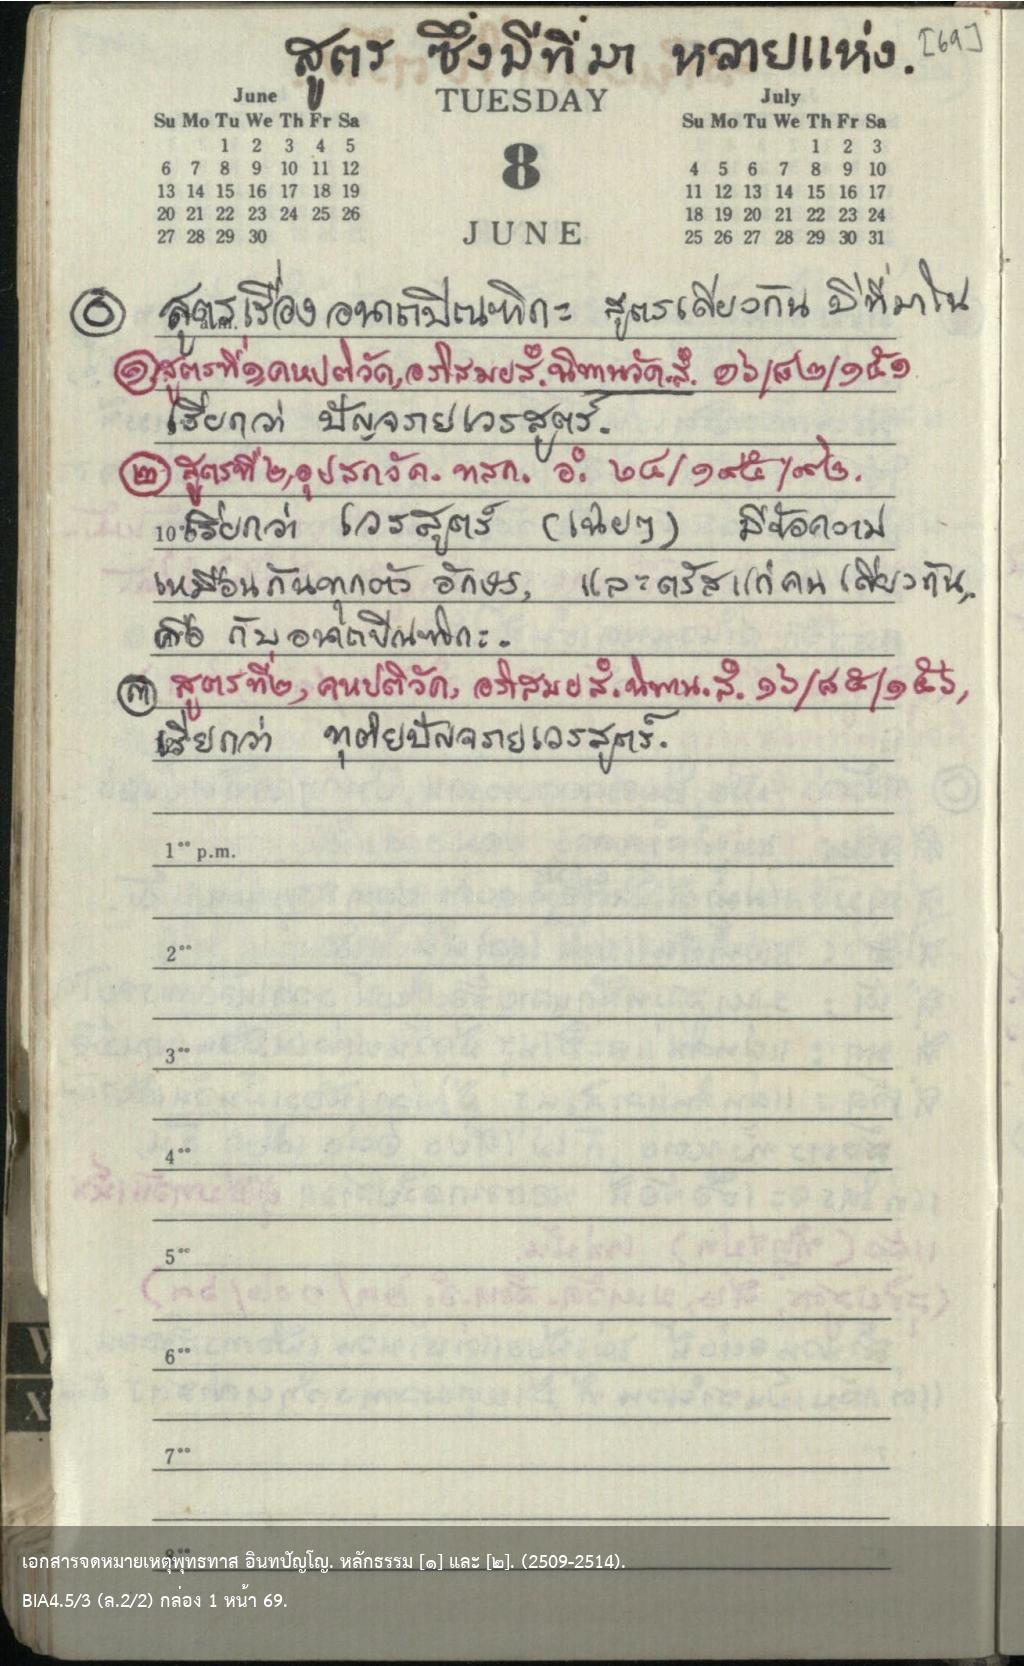 สูตร ซึ่งมีที่มา หลายแห่ง. [69]
June
Su Mo Tu We Th Fr Sa
1 2 3 4 5
6 7 8 9 10 11 12
13 14 15 16 17 18 19
20 21 22 23 24 25 26
27 28 29 30
TUESDAY
8
JUNE
July
Su Mo Tu We Th Fr Sa
1 2 3
4 5 6 7 8 9 10
11 12 13 14 15 16 17
18 19 20 21 22 23 24
25 26 27 28 29 30 31
สูตรเรื่อง อนาถปิณฑิกะ สูตรเดียวกัน มีที่มาใน
๑ สูตรที่ ๑ คหปติวัค, อภิสมยสํ. นิทานวัค. สํ. ๑๖/๘๒/๑๕๑
เรียกว่า ปัญจภยเวรสูตร์.
๒ สูตรที่ ๒, อุปาสกวัค. ทสก. อํ. ๒๔/๑๙๕/๙๒.
10 เรียกว่า เวรสูตร์ (เฉยๆ) มีข้อความ
เหมือนกันทุกตัว อักษร, และตรัสแก่คนเดียวกัน,
คือ กับอนาถปิณฑิกะ.
๓ สูตรที่ ๒, คหปติวัค, อภิสมยสํ. นิทาน. สํ. ๑๖/๘๕/๑๕๖,
เรียกว่า ทุติยปัญจภยเวรสูตร์.
1°° p.m.
2°°
3°°
4°°
5°°
6°°
7°°
8°°
เอกสารจดหมายเหตุพุทธทาส อินทปัญโญ. หลักธรรม [๑] และ [๒]. (2509-2514).
BIA4.5/3 (ล.2/2) กล่อง 1 หน้า 69.